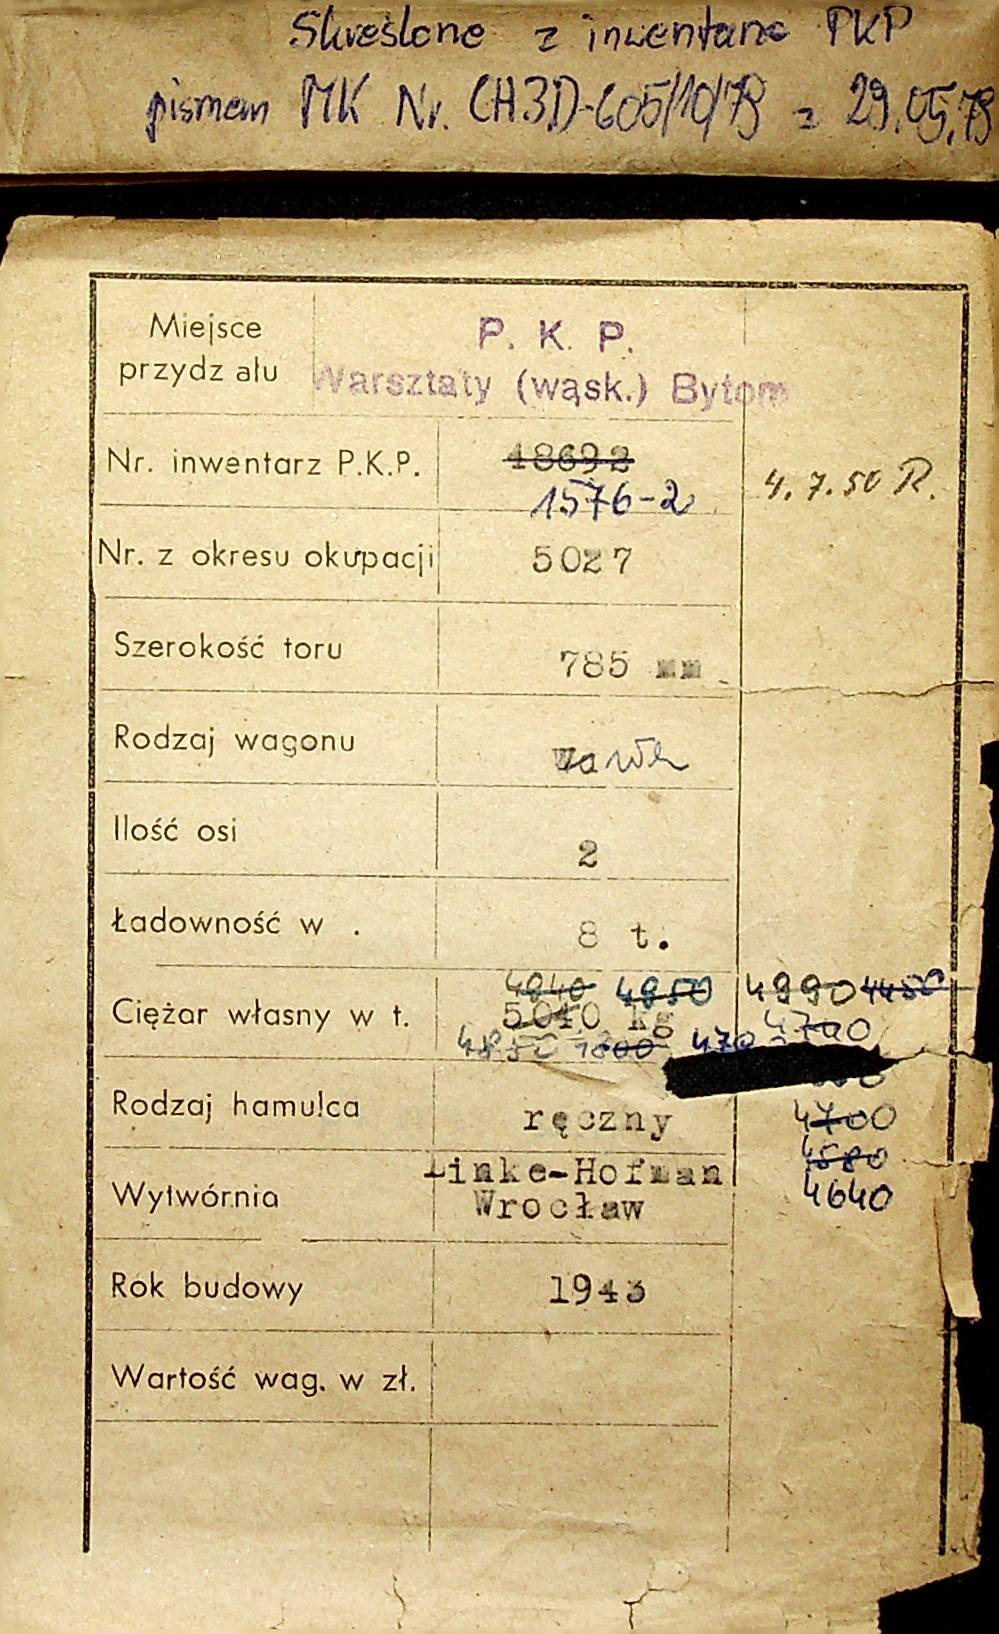 Skreślone z inwentarza PKP
pismem MK Nr. CH3D-605/10/79 z 29.05.79
Miejsce
przydz ału
P. K. P.
Warsztaty (wąsk.) Bytom
Nr. inwentarz P.K.P.
18692
1576-2
4.7.50 R.
Nr. z okresu okupacji
5027
Szerokość toru
785 mm
Rodzaj wagonu
Ilość osi
2
Ładowność w .
8 t.
4840 4850 4990 4450
Ciężar własny w t.
5040 kg
4700
4850 1800 470
Rodzaj hamulca
ręczny
4700
4580
4640
Wytwórnia
Linke-Hofman
Wrocław
Rok budowy
1943
Wartość wag. w zł.